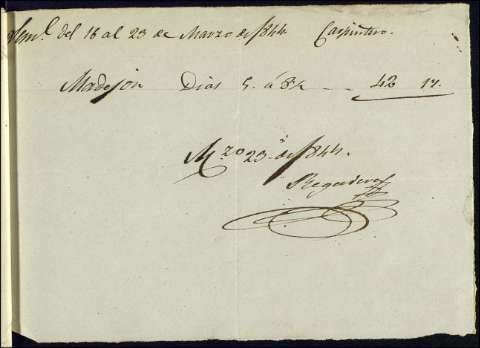 Sem.l del 18 al 23 de Marzo de 1844 Carpintero.
Madejon Dias 5. a 8½ 42 17.
Mzo 23 de 1844.
Regadera